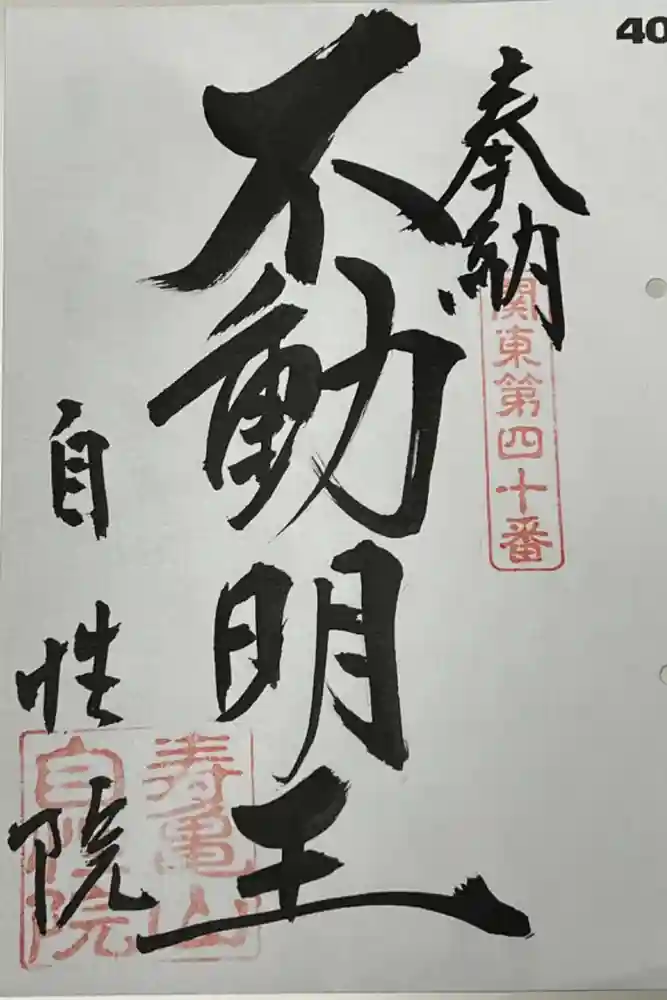 40
奉納
関東第四十番
不動明王
自性院
寿亀山
自性院